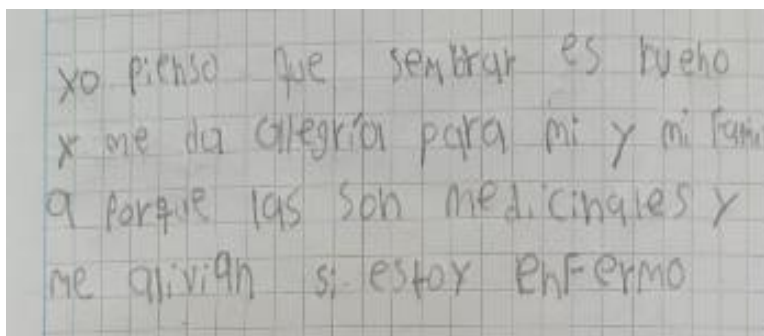 yo pienso que sembrar es bueno
y me da alegría para mi y mi fami
a porque las son medicinales y
me alivian si estoy enfermo